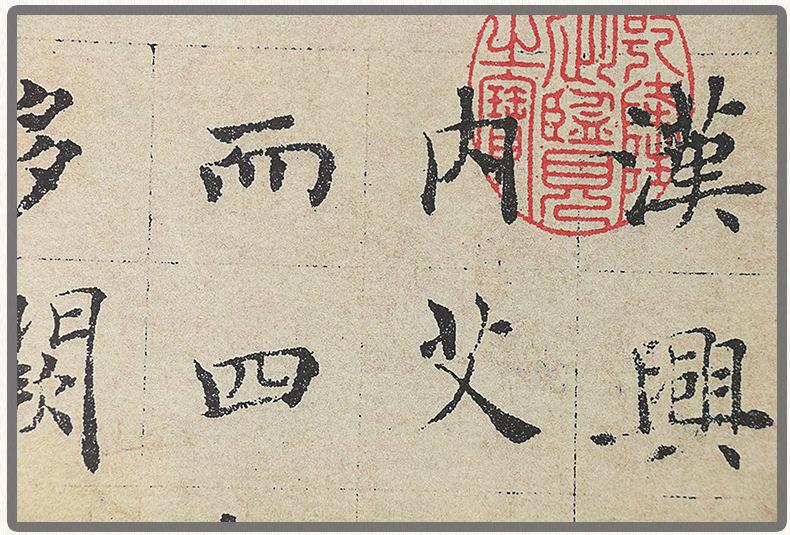 漢興
内艾
而四
多闕